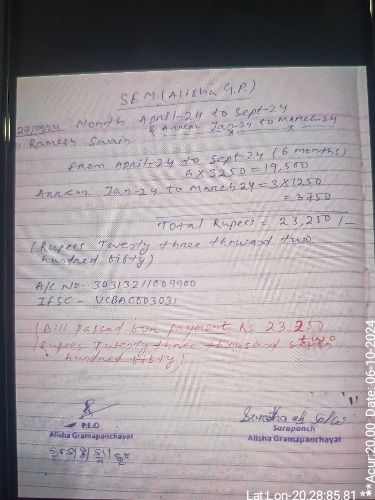 SEM (Alisha G.P.)
27/09/24 Month April-24 to Sept-24
& Arrear Jan-24 to March-24
Ramesh Swain
from April-24 to Sept-24 (6 months)
6 x 3250 = 19,500
Arrear Jan-24 to March 24 = 3 x 1250
= 3750
Total Rupees = 23,250/-
(Rupees Twenty three thousand two
hundred fifty)
A/C No- 30313211009900
IFSC - UCBA0003031
(Bill passed for payment Rs 23,250
(Rupees Twenty three thousand two
hundred fifty)
P.E.O
Alisha Gramapanchayat
Sarapanch
Alisha Gramapanchayat
Lat:Lon-20.28:85.81 **Acur:20.00 Date:06-10-2024